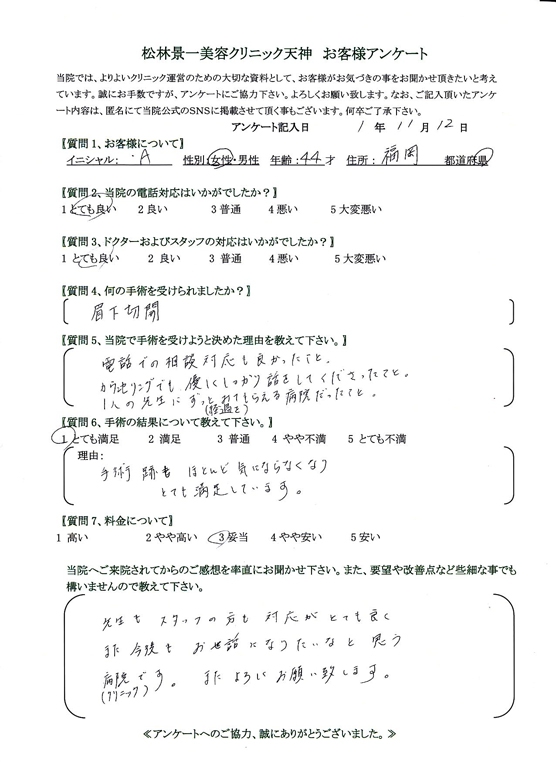 松林景一美容クリニック天神　お客様アンケート
当院では、よりよいクリニック運営のための大切な資料として、お客様がお気づきの事をお聞かせ頂きたいと考え
ています。誠にお手数ですが、アンケートにご協力下さい。よろしくお願い致します。なお、ご記入頂いたアンケ
ート内容は、匿名にて当院公式のSNSに掲載させて頂く事もございます。何卒ご了承下さい。
アンケート記入日　1 年 11 月 12 日
〖質問1、お客様について〗
イニシャル： A　性別：女性・男性　年齢：44才　住所：福岡　都道府県
〖質問2、当院の電話対応はいかがでしたか？〗
1 とても良い　2 良い　3 普通　4 悪い　5 大変悪い
〖質問3、ドクターおよびスタッフの対応はいかがでしたか？〗
1 とても良い　2 良い　3 普通　4 悪い　5 大変悪い
〖質問4、何の手術を受けられましたか？〗
眉下切開
〖質問5、当院で手術を受けようと決めた理由を教えて下さい。〗
電話での相談対応も良かったこと。
カウンセリングでも優しくしっかり話をしてくださったこと。
1人の先生にずっとみてもらえる病院だったこと。
(経過を)
〖質問6、手術の結果について教えて下さい。〗
1 とても満足　2 満足　3 普通　4 やや不満　5 とても不満
理由：
手術跡も ほとんど気にならなくなり
とても満足しています。
〖質問7、料金について〗
1 高い　2 やや高い　3 妥当　4 やや安い　5 安い
当院へご来院されてからのご感想を率直にお聞かせ下さい。また、要望や改善点など些細な事でも
構いませんので教えて下さい。
先生も スタッフの方も 対応がとても良く
また今後も お世話になりたいなと 思う
病院です。 またよろしくお願い致します。
(クリニック)
≪アンケートへのご協力、誠にありがとうございました。≫